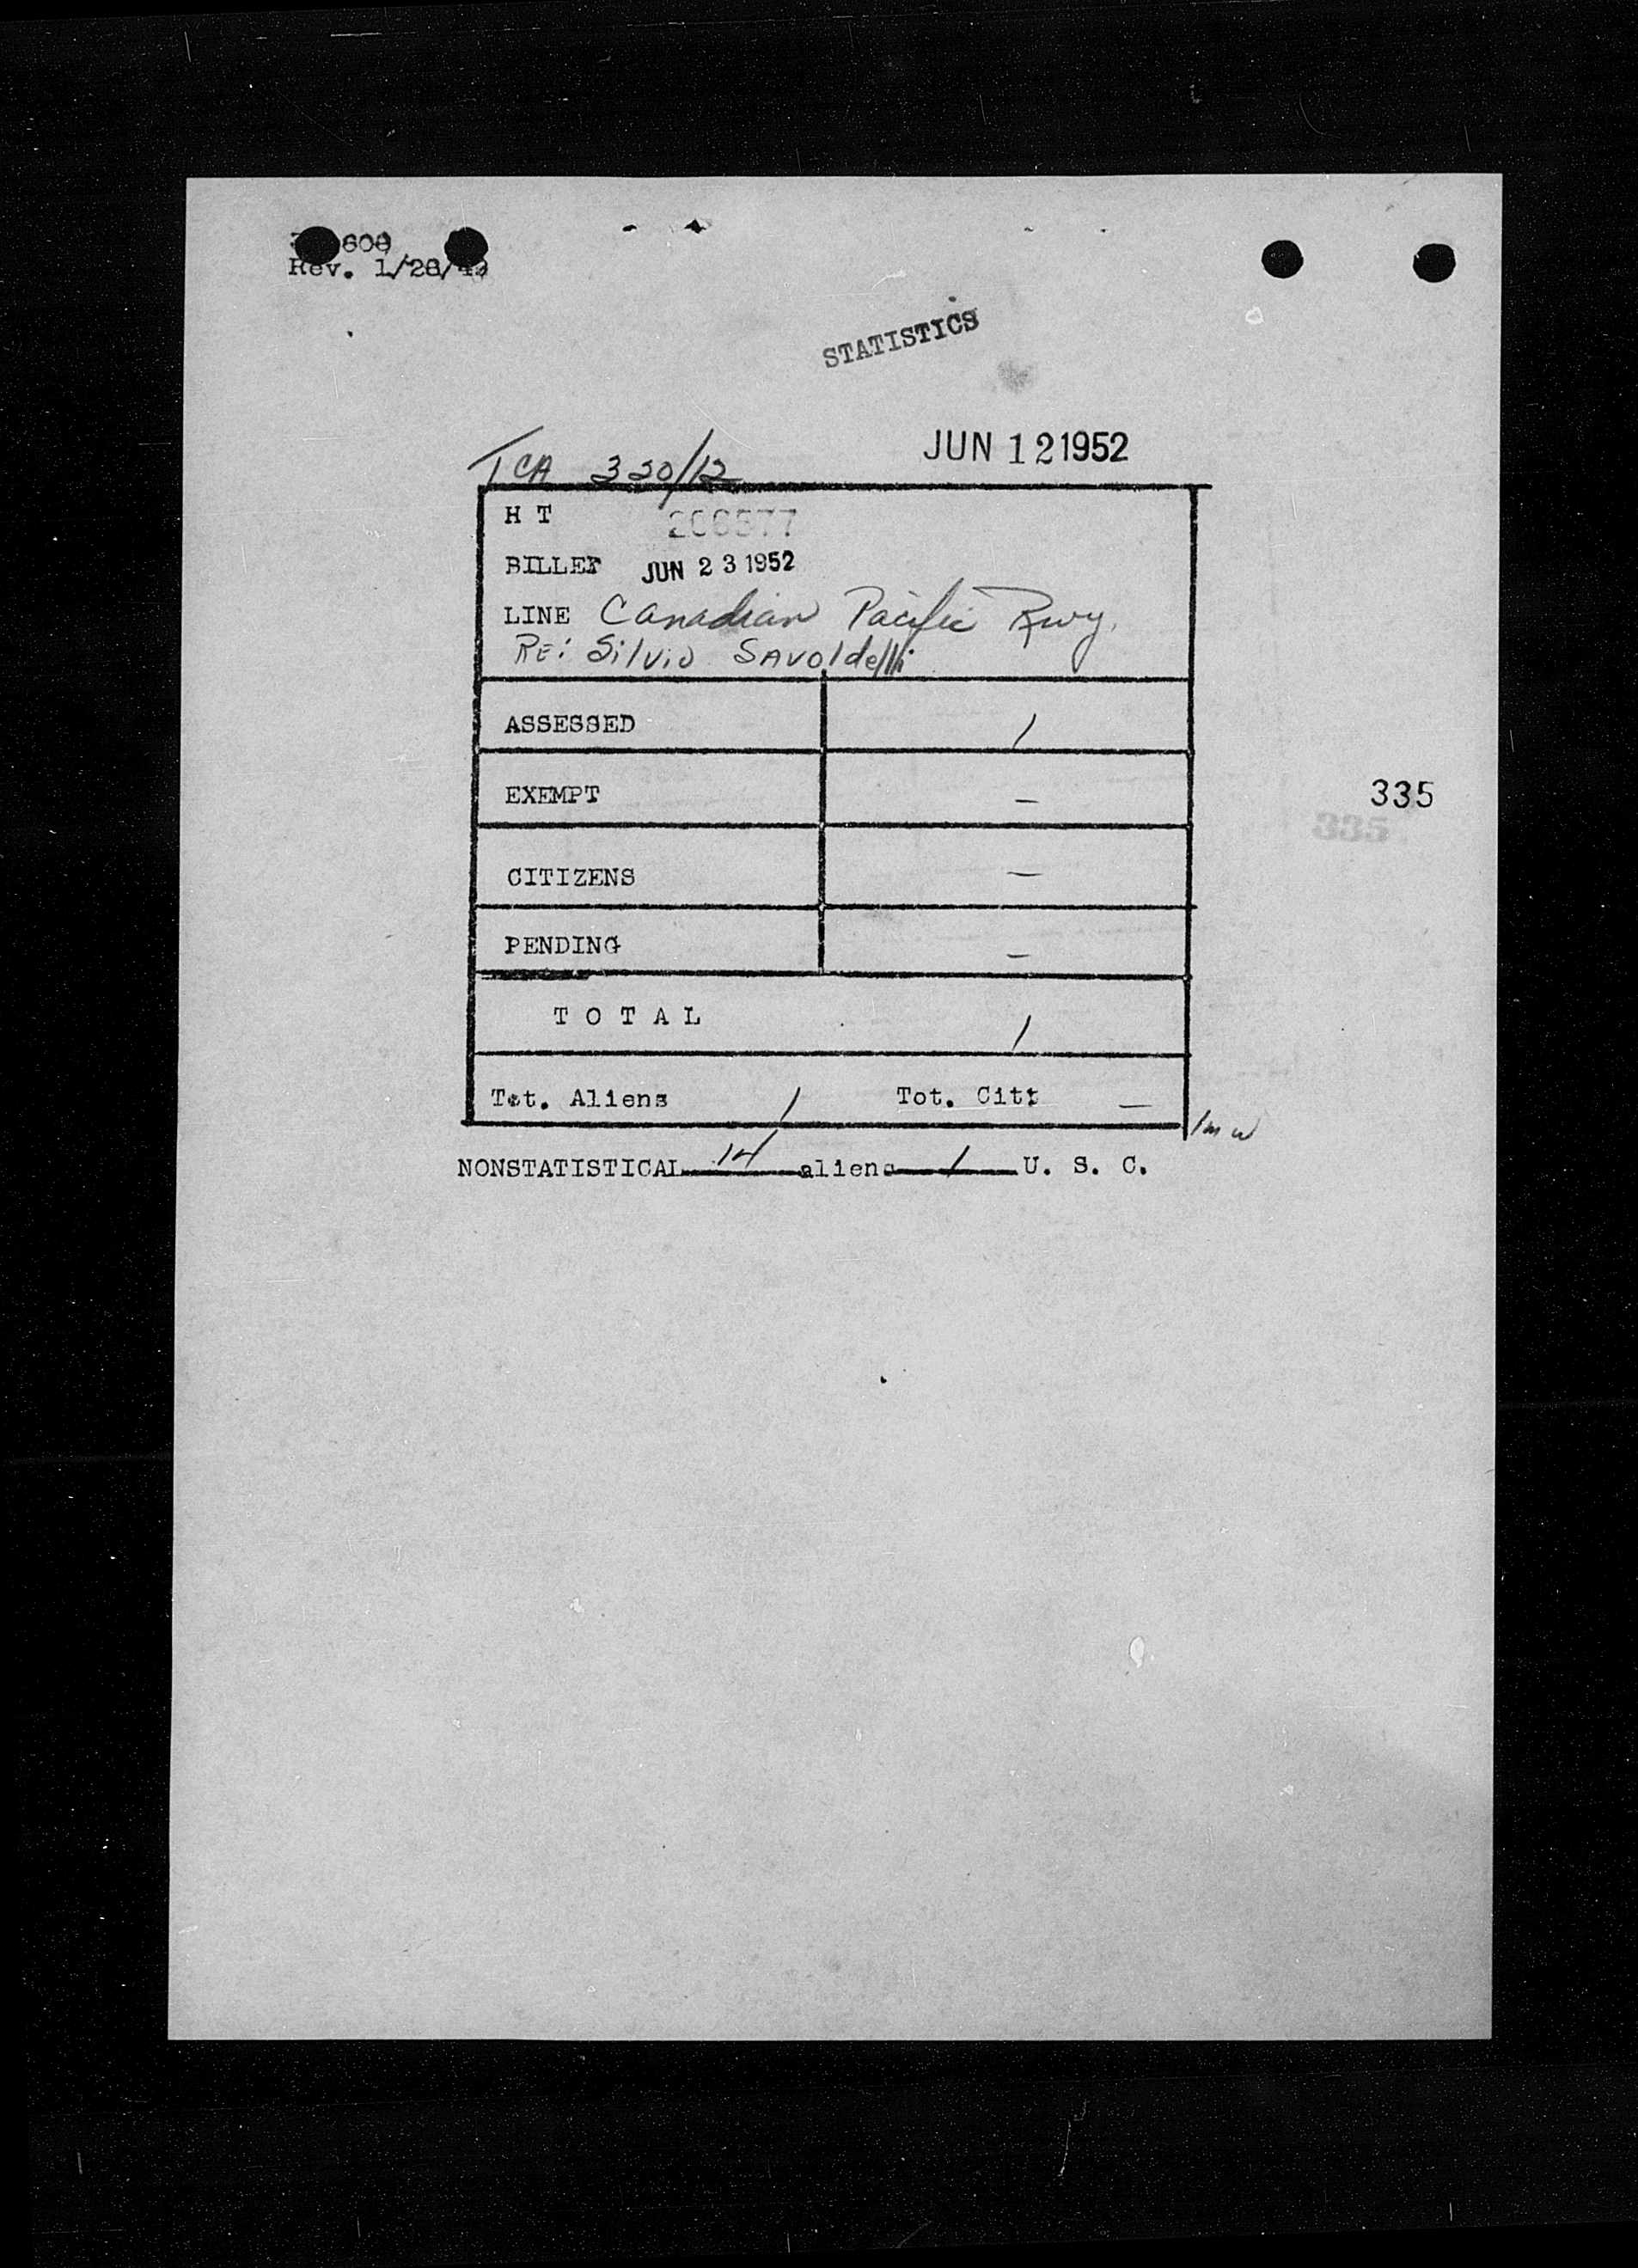 608
Rev. 1/28/43
STATISTICS
JUN 12 1952
TCA 320/12
H T 206577
BILLET JUN 23 1952
LINE Canadian Pacific Rwy.
RE: Silvio Savoldelli
ASSESSED 1
EXEMPT —
335
335
CITIZENS —
PENDING —
T O T A L 1
Tot. Aliens 1 Tot. Citz —
NONSTATISTICAL 14 aliens 1 U. S. C.